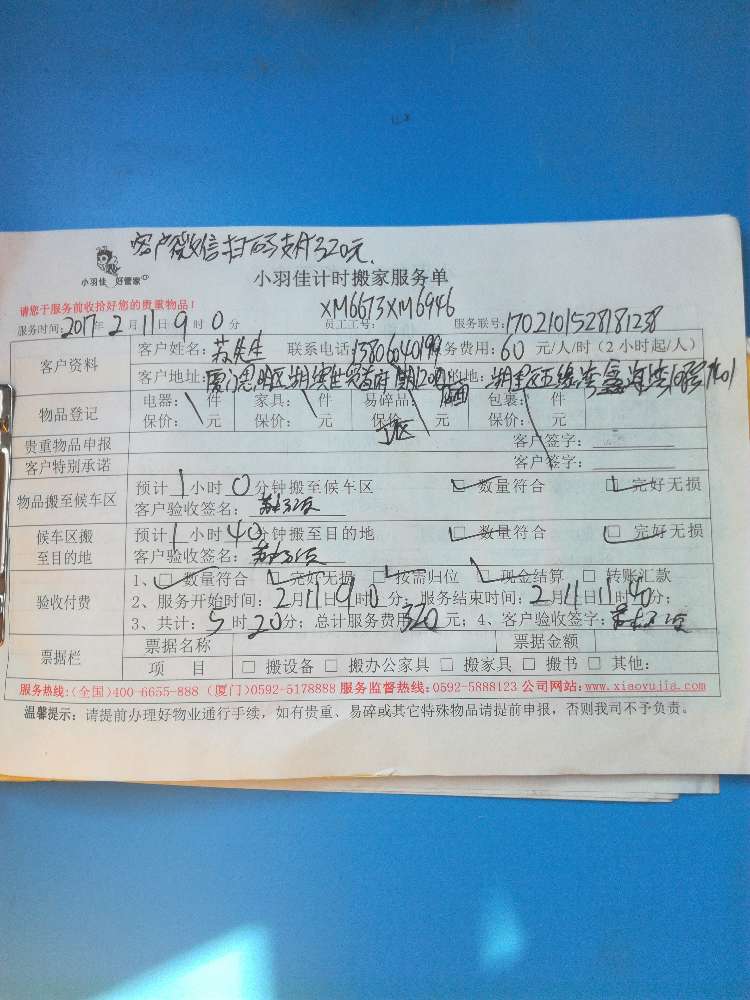 客户微信扫码支付320元.
小羽佳 好管家
小羽佳计时搬家服务单
请您于服务前收拾好您的贵重物品！
XM6673XM6946
服务时间：2017年2月11日9时0分 员工工号： 服务联号：1702101528181238
客户资料
客户姓名：苏先生 联系电话：13806040199 服务费用：60 元/人/时（2小时起/人）
客户地址：厦门思明区
物品登记
电器： 件 家具： 件 易碎品： 包裹： 件
保价： 元 保价： 元 保价： 元 保价： 元
贵重物品申报 客户签字：
客户特别承诺 客户签字：
物品搬至候车区
预计1小时0分钟搬至候车区 □ 数量符合 □ 完好无损
客户验收签名：
候车区搬至目的地
预计1小时40分钟搬至目的地 □ 数量符合 □ 完好无损
客户验收签名：
验收付费
1、□ 数量符合 □ 完好无损 □ 按需归位 □ 现金结算 □ 转账汇款
2、服务开始时间：2月11日9时0分；服务结束时间：2月11日11时40分；
3、共计：5时20分；总计服务费用320元；4、客户验收签字：
票据栏
票据名称 票据金额
项 目 □ 搬设备 □ 搬办公家具 □ 搬家具 □ 搬书 □ 其他：
服务热线:(全国)400-6655-888 (厦门)0592-5178888 服务监督热线:0592-5888123 公司网站:www.xiaoyujia.com
温馨提示：请提前办理好物业通行手续，如有贵重、易碎或其它特殊物品请提前申报，否则我司不予负责。